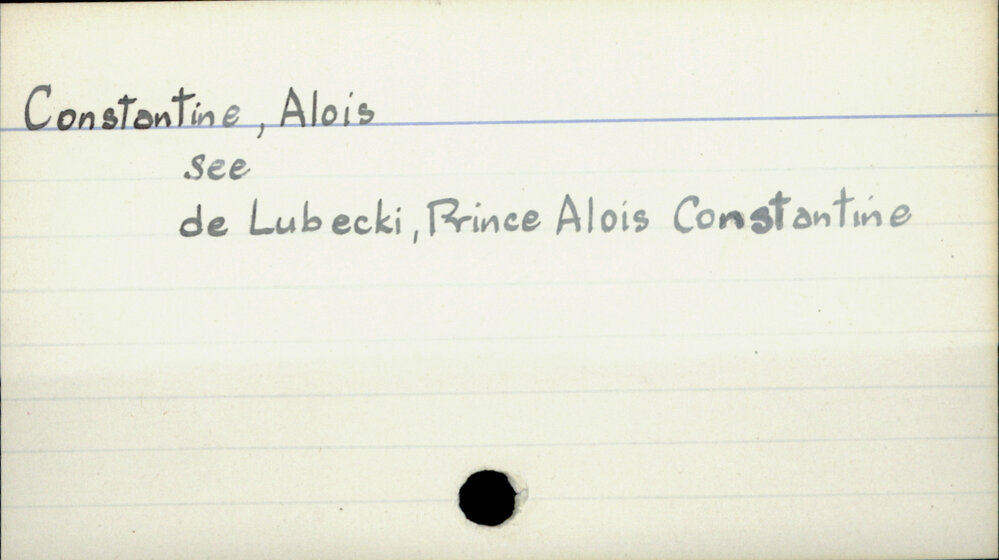 Constantine, Alois
see
de Lubecki, Prince Alois Constantine